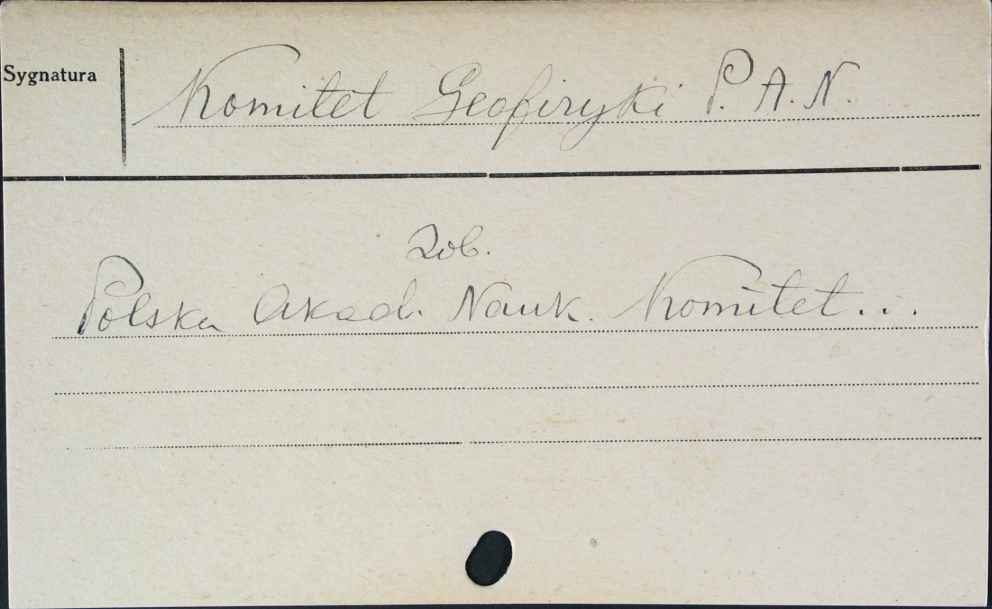 Sygnatura
Komitet Geofizyki P. A. N.
Zob.
Polska Akad. Nauk. Komitet...